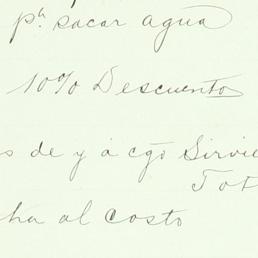 pª. sacar agua
10% Descuento
s de y á cgo Sirvie
Tot
ha al costo